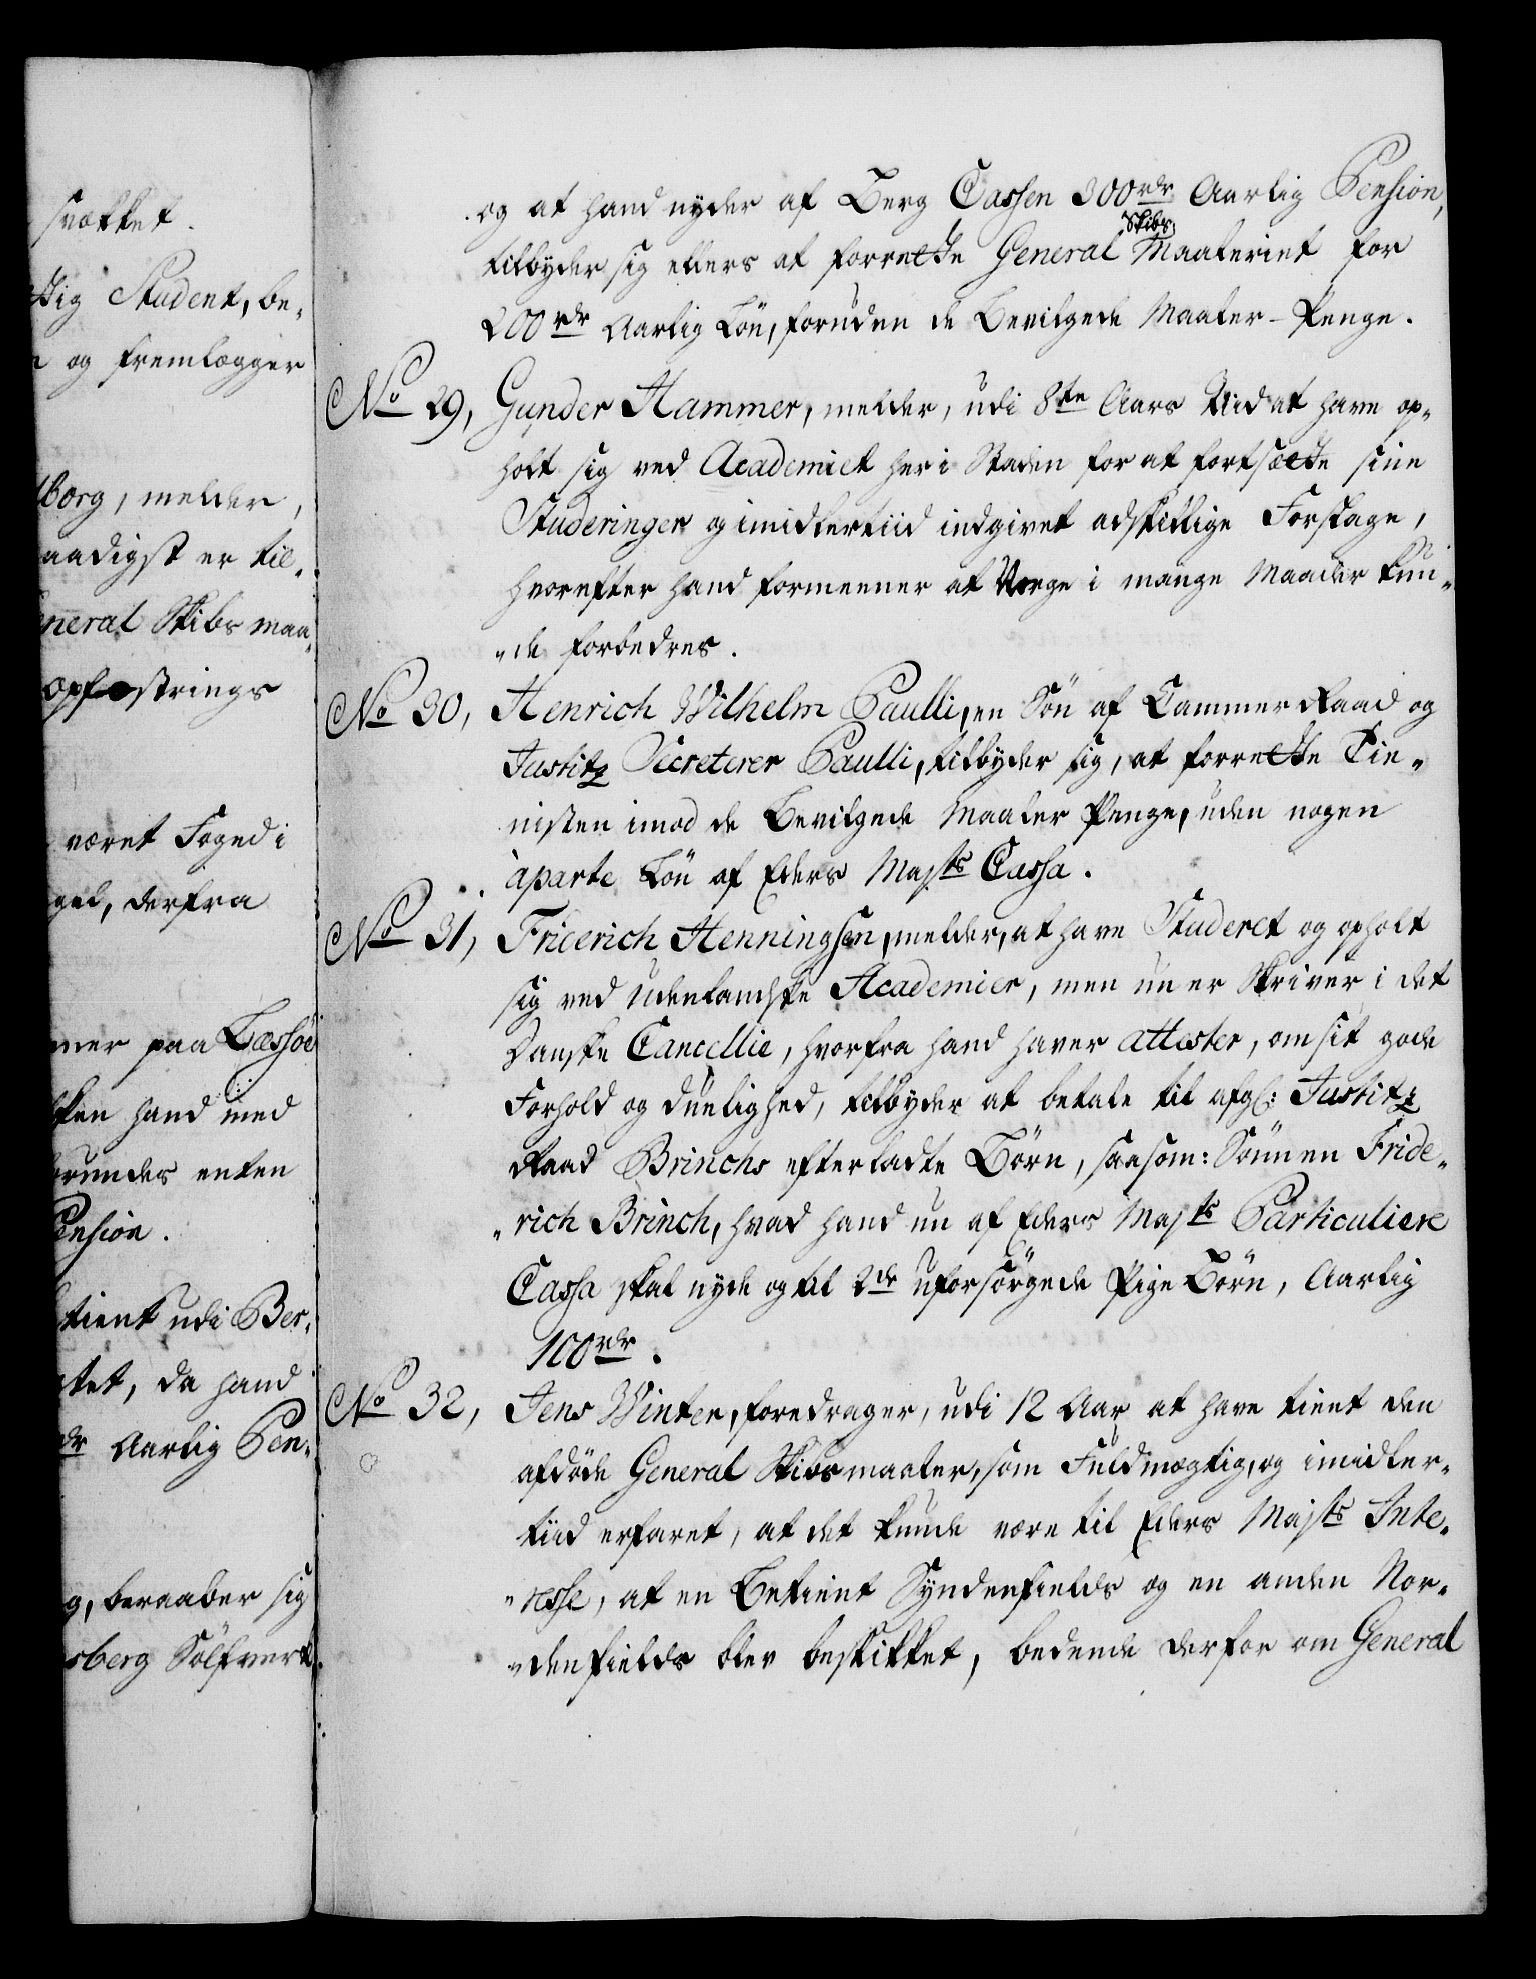 svækket.
ttig Student, be„
og fremlægger
lborg, melder,
aadigst er til„
eneral Skibs maa„
Opfostrings
været Foged i
ged, derfra
mer paa Læssöe
lken hand med
grundes enten
Pension.
tient udi Ber„
tet, da hand
rdr Aarlig Pen„
g, beraaber sig
sberg Sölfverk,
og at hand nyder af Berg Cassen 300 rdr Aarlig Pension,
tilbyder sig ellers at forrette General Skibs Maaleriet for
200 rdr Aarlig Lön, foruden de Bevilgede Maaler-Penge.
No 29, Gunder Hammer, melder, udi 8te Aars Tiid at have op„
holt sig ved Academiet her i Staden for at fortsætte sine
Studeringer og imidlertiid indgivet adskillige Forslage,
hvorefter hand formeener at Norge i mange Maader kun„
„de forbedres.
No 30, Henrich Wilhelm Paulli, en Sön af Cammer Raad og
Justitz Secreterer Paulli, tilbyder sig, at forrette Tie„
nisten imod de Bevilgede Maaler Penge, uden nogen
àparte Lön af Eders Majts Cassa.
No 31, Friderich Henningsen, melder, at have Studeret og opholt
sig ved udenlandske Academier, men nu er Skriver i det
Danske Cancellie, hvorfra hand haver attester, om sit gode
Forhold og duelighed, tilbyder at betale til afgl: Justitz
Raad Brinchs efterladte Börn, saasom: Sönnen Fride„
„rich Brinch, hvad hand nu af Eders Majts Particuliere
Cassa skal nyde og til 2de uforsörgede Pige Börn, Aarlig
100 rdr.
No 32, Jens Winter, foredrager, udi 12 Aar at have tient den
afdöde General Skibsmaaler, som Fuldmægtig, og imidler„
tiid erfaret, at det kunde være til Eders Majts Inte„
„resse, at en Betient Syndenfields og en anden Nor„
„denfields blev beskikket, bedende derfor om General